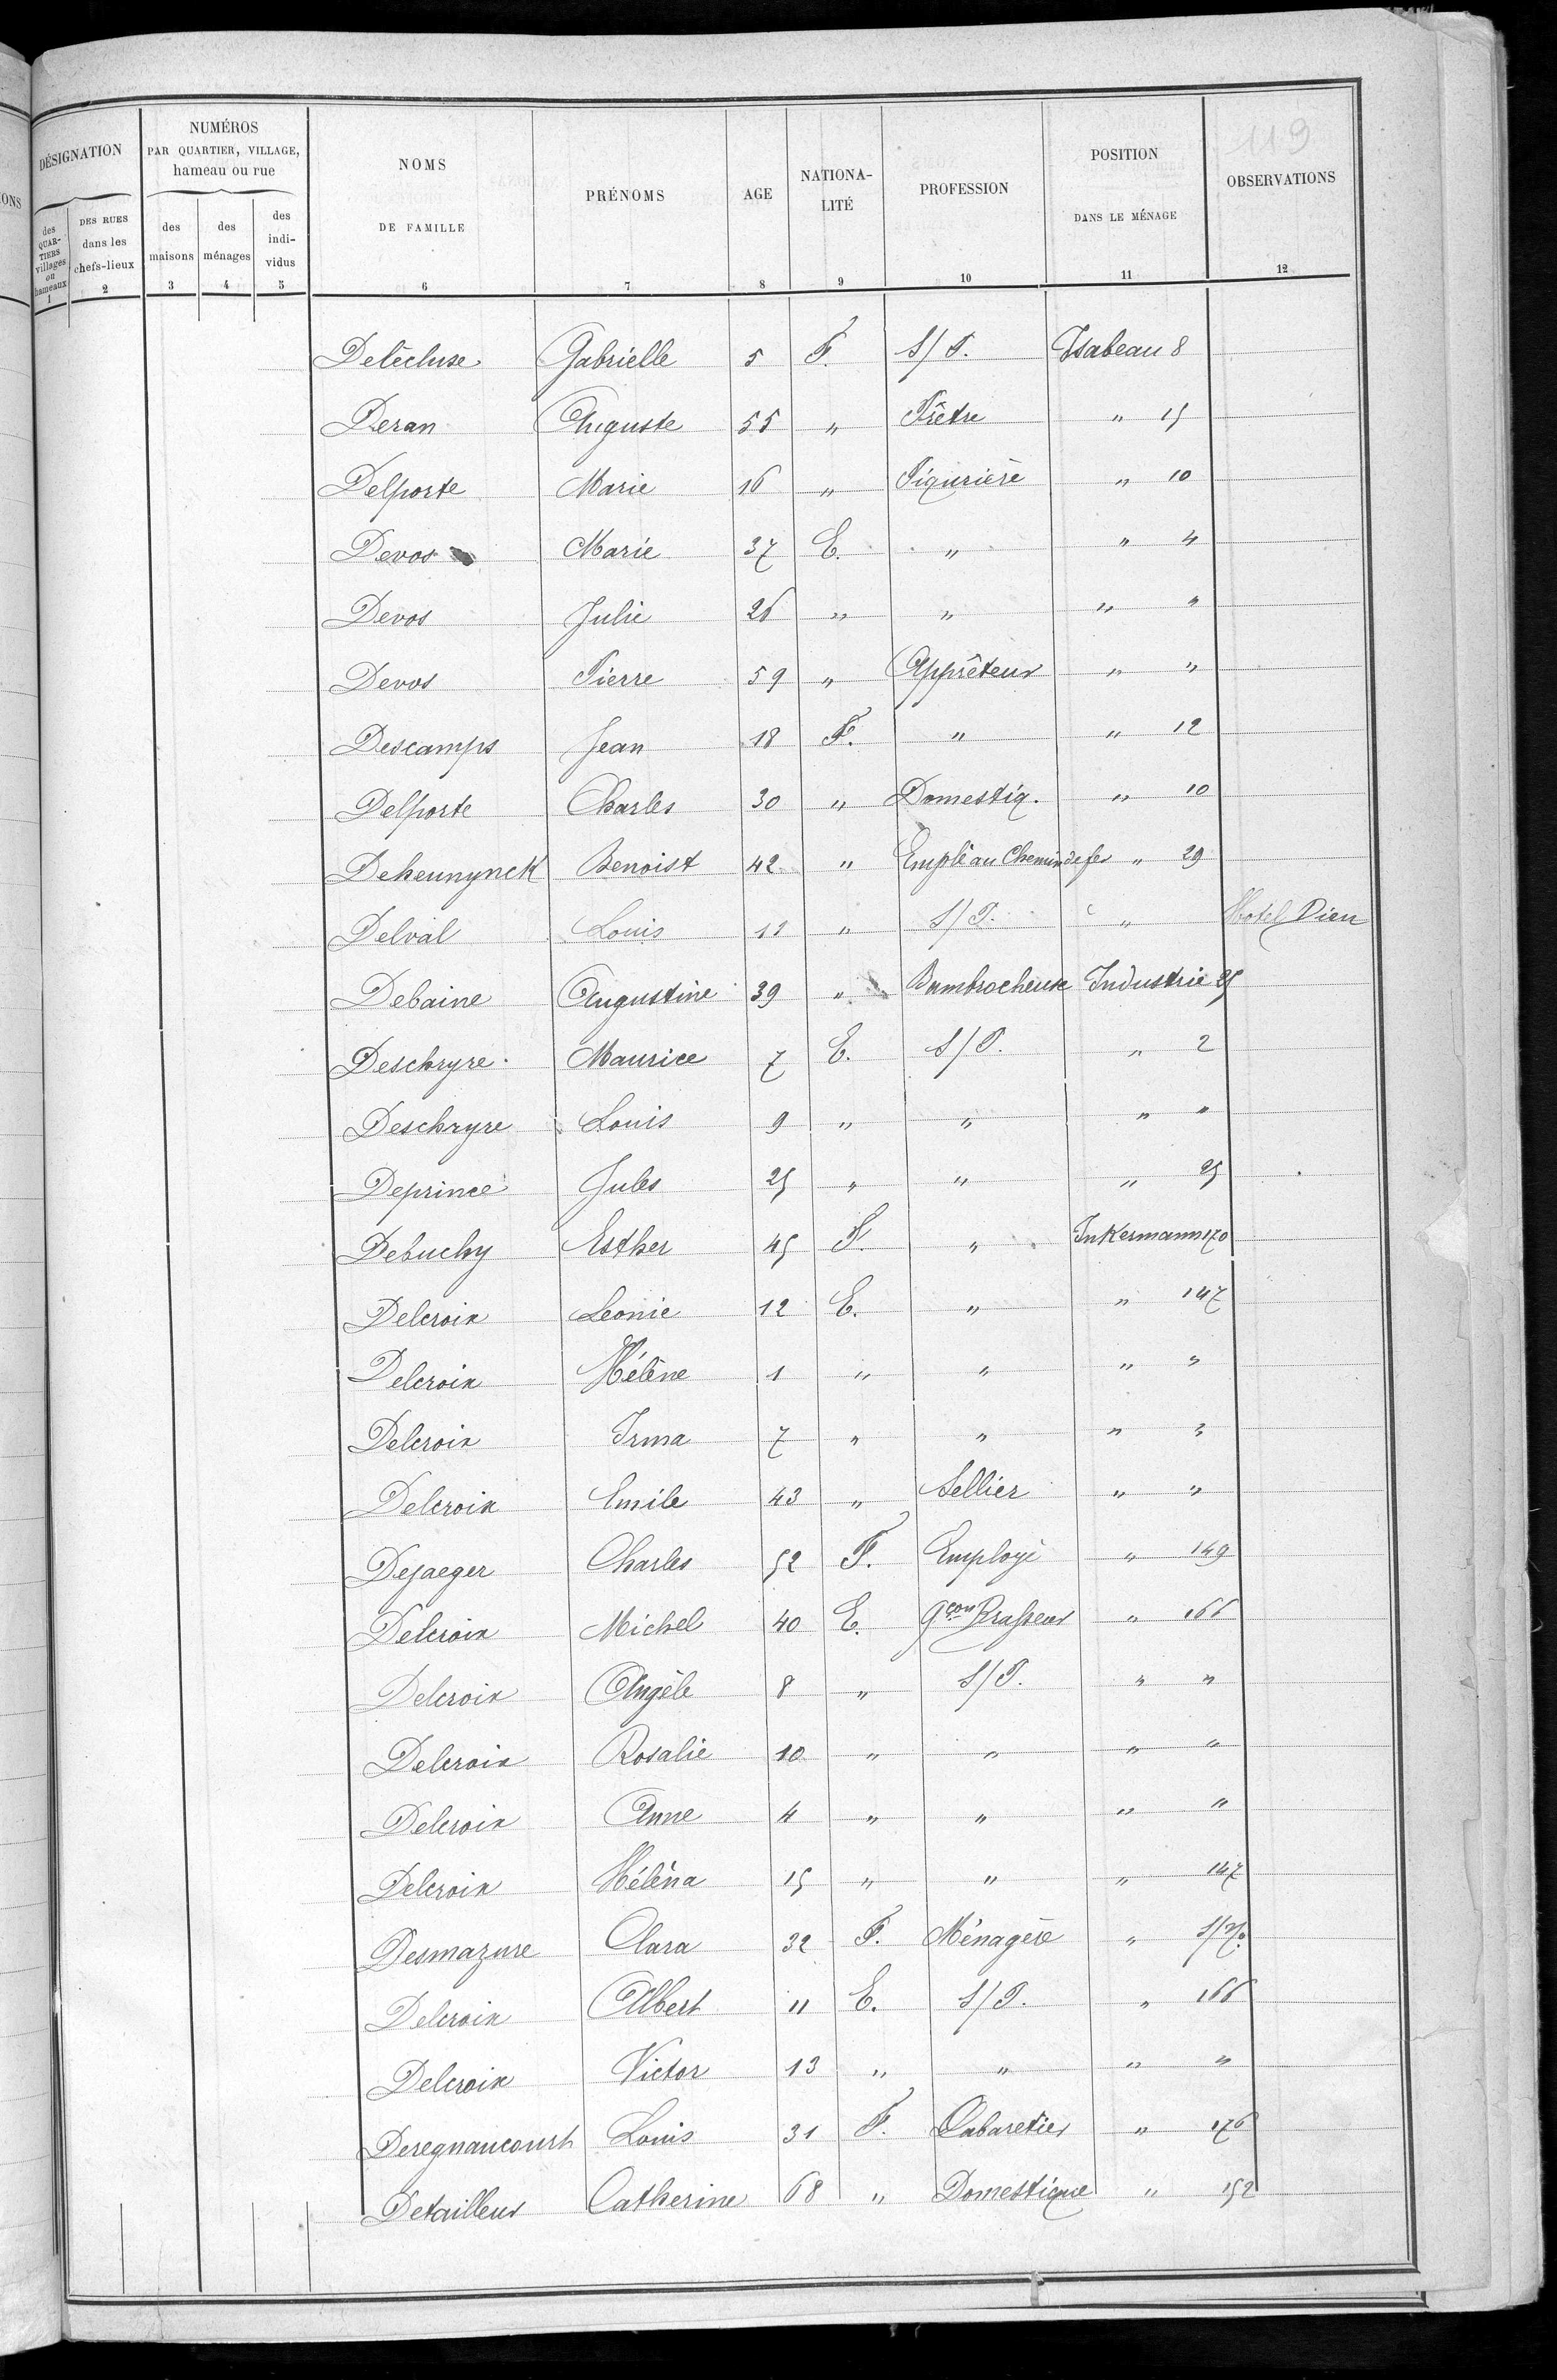 119
DÉSIGNATION
NUMÉROS
PAR QUARTIER, VILLAGE,
hameau ou rue
NOMS
DE FAMILLE
PRÉNOMS
AGE
NATIONA-
LITÉ
PROFESSION
POSITION
DANS LE MÉNAGE
OBSERVATIONS
des
QUAR-
TIERS
villages
ou
hameaux
DES RUES
dans les
chefs-lieux
des
maisons
des
ménages
des
indi-
vidus
1 2 3 4 5 6 7 8 9 10 11 12
Delécluse Gabrielle 5 F. S/P. Isabeau 8
Deran Auguste 55 " Prêtre " 15
Delporte Marie 16 " Piqurière " 10
Devos Marie 37 E. " " 4
Devos Julie 26 " " " "
Devos Pierre 59 " Apprêteur " "
Descamps Jean 18 F. " " 12
Delporte Charles 30 " Domestiq. " 10
Deheunynck Benoist 42 " Emplé au Chemin de fer " 29
Delval Louis 12 " S/P. " Hotel Dieu
Debaine Augustine 39 " Bambrocheuse Industrie 25
Deschryre Maurice 7 E. S/P. " 2
Deschryre Louis 9 " " " "
Deprince Jules 25 " " " 25
Debuchy Esther 45 F. " Inkermann 170
Delcroix Leonie 12 E. " " 147
Delcroix Hélène 1 " " " "
Delcroix Irma 7 " " " "
Delcroix Emile 43 " Sellier " "
Dejaeger Charles 52 F. Employé " 149
Delcroix Michel 40 E. Gçon Brasseur " 166
Delcroix Angèle 8 " S/P. " "
Delcroix Rosalie 10 " " " "
Delcroix Anne 4 " " " "
Delcroix Héléna 15 " " " 147
Desmazure Clara 32 F. Ménagère " S/No
Delcroix Albert 11 E. S/P. " 166
Delcroix Victor 13 " " " "
Deregnaucourt Louis 31 F. Cabaretier " 176
Detailleur Catherine 68 " Domestique " 152